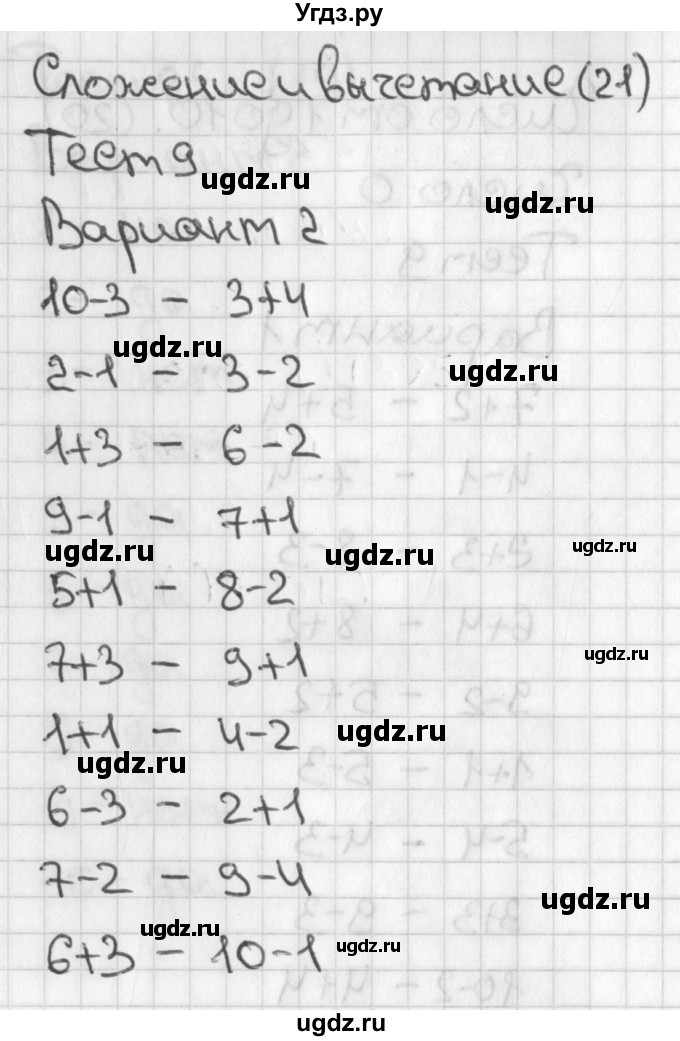 Угдз.ру
Сложение и вычетание (21)
Тест 9
ugdz.ru
ugdz.ru
Вариант 2
10-3 - 3+4
ugdz.ru
ugdz.ru
2-1 - 3-2
1+3 - 6-2
9-1 - 7+1
ugdz.ru
ugdz.ru
ugdz.ru
5+1 - 8-2
7+3 - 9+1
ugdz.ru
1+1 - 4-2
ugdz.ru
ugdz.ru
6-3 - 2+1
7-2 - 9-4
ugdz.ru
ugdz.ru
6+3 - 10-1
ugdz.ru
ugdz.ru